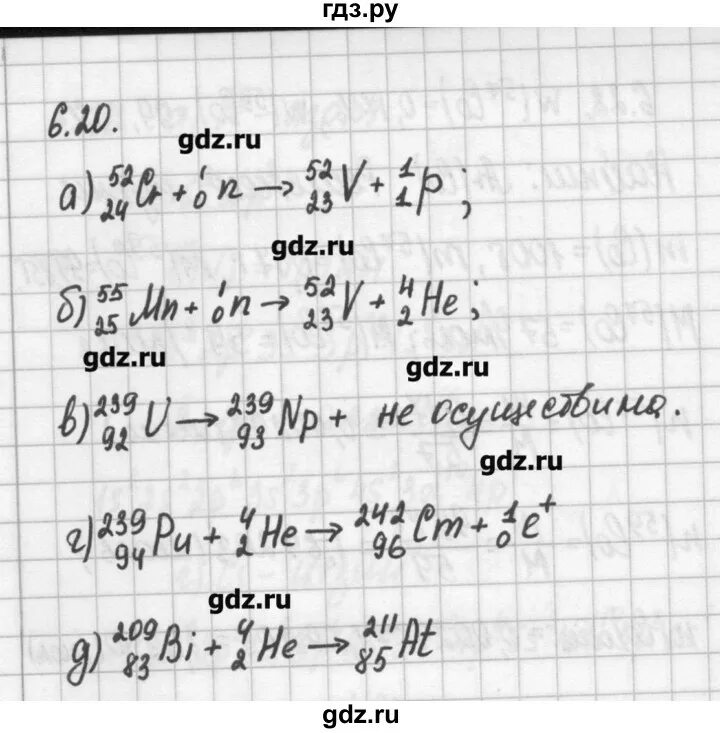 гдз.ру
6.20.
gdz.ru
а) ⁵²₂₄Cr + ¹₀n → ⁵²₂₃V + ¹₁p;
gdz.ru
б) ⁵⁵₂₅Mn + ¹₀n → ⁵²₂₃V + ⁴₂He;
gdz.ru gdz.ru
в) ²³⁹₉₂U → ²³⁹₉₃Np + не осуществима.
gdz.ru
г) ²³⁹₉₄Pu + ⁴₂He → ²⁴²₉₆Cm + ¹₀e⁺
gdz.ru
д) ²⁰⁹₈₃Bi + ⁴₂He → ²¹¹₈₅At
gdz.ru